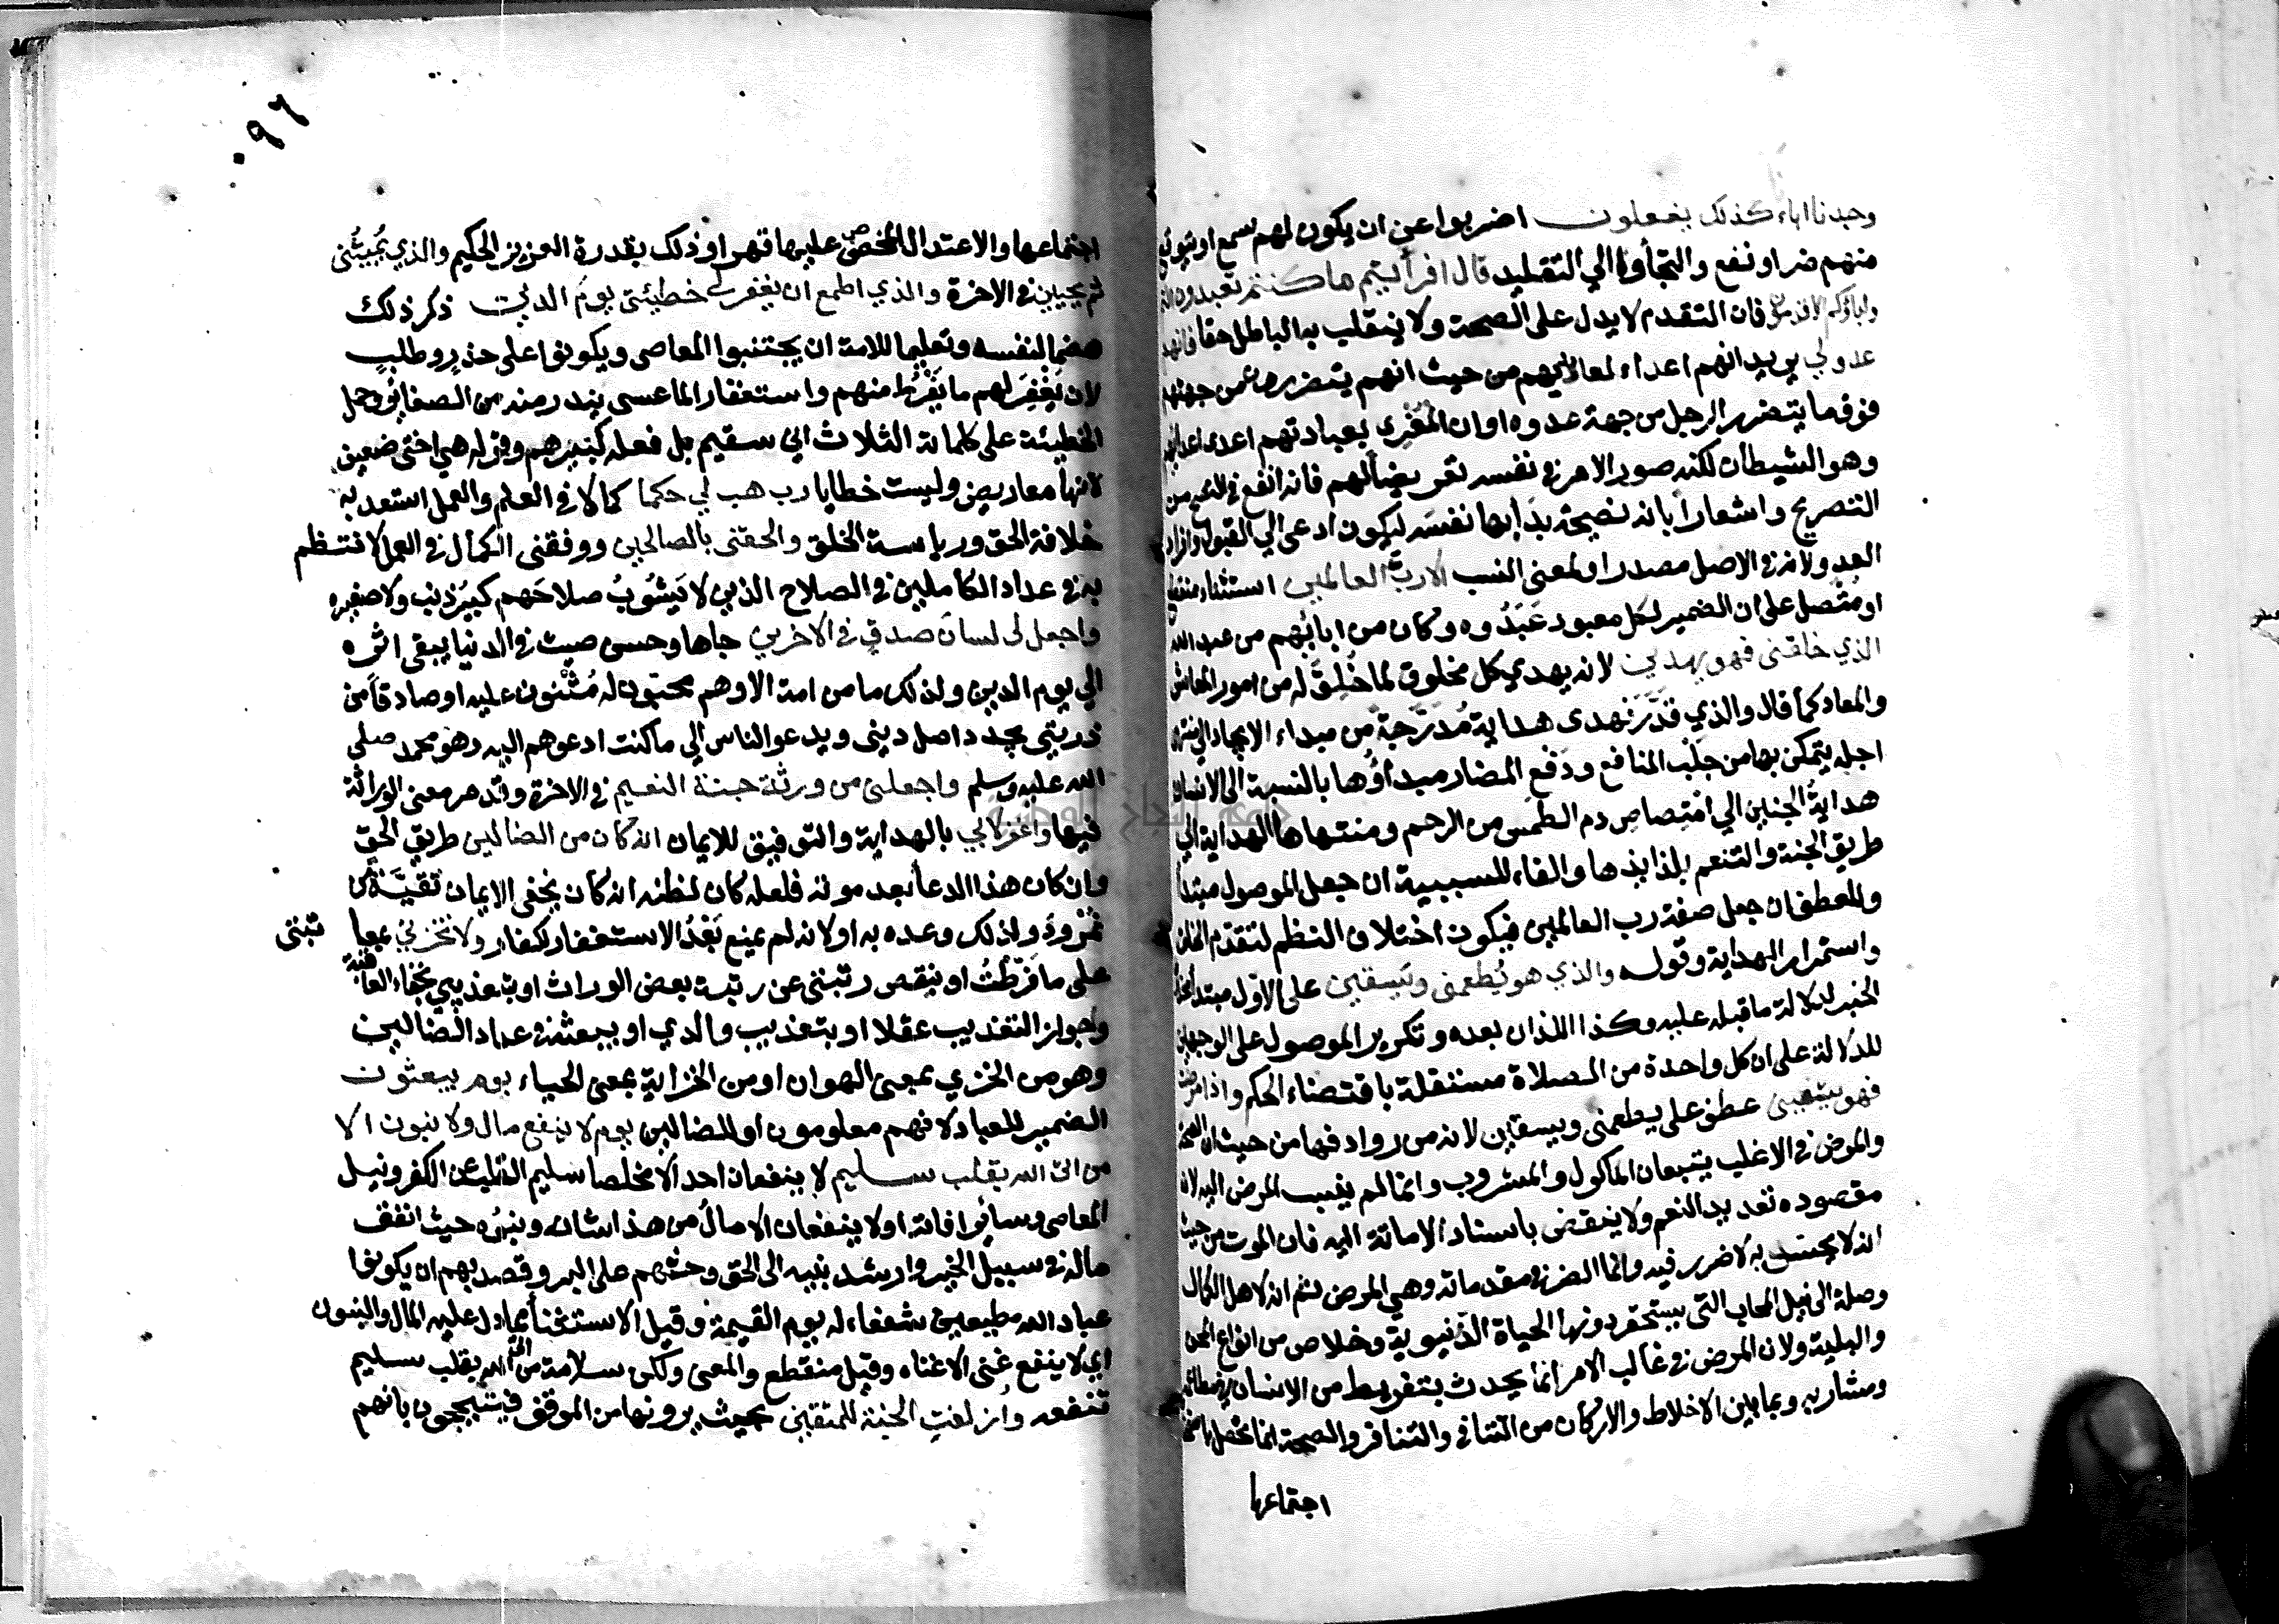 وجدنا اباءنا كذلك يفعلون اضربوا عن ان يكون لهم سمع او يتوقع
منهم ضر او نفع والتجأوا الي التقليد قال افرأيتم ما كنتم تعبدون انتم
واباؤكم الاقدمون فان التقدم لا يدل على الصحة ولا ينقلب به الباطل حقا فانهم
عدو لي يريد انهم اعداء لعابديهم من حيث انهم يتضررون من جهتهم
فوق ما يتضرر الرجل من جهة عدوه او ان المغري بعبادتهم اعدى اعدائهم
وهو الشيطان لكنه صور الامر في نفسه تعريضا لهم فانه انفع في النصح من
التصريح واشعارا بانه نصيحة بدأ بها نفسه ليكون ادعى الي القبول وافراد
العدو لانه في الاصل مصدر او لمعنى النسب الا رب العالمين استثناء منقطع
او متصل على ان الضمير لكل معبود عبدوه وكان من ابائهم من عبد الله
الذي خلقني فهو يهدين لانه يهدي كل مخلوق لما خلق له من امور المعاش
والمعاد كما قال والذي قدر فهدى هداية مدرجة من مبداء الايجاد الي منتهى
اجله يتمكن بها من جلب المنافع ودفع المضار مبداؤها بالنسبة الى الانسان
هداية الجنين الي امتصاص دم الطمث من الرحم ومنتهاها الهداية الي
طريق الجنة والتنعم بلذايذها والفاء للسببية ان جعل الموصول مبتدا
وللعطف ان جعل صفة رب العالمين فيكون اختلاف النظم لتقدم الخلق
واستمرار الهداية وقوله والذي هو يطعمني ويسقين على الاول مبتدأ محذوف
الخبر لدلالة ما قبله عليه وكذا اللذان بعده وتكرير الموصول على الوجهين
للدلالة على ان كل واحدة من الصلاة مستقلة باقتضاء الحكم واذا مرضت
فهو يشفين عطف على يطعمني ويسقين لانه من روادفها من حيث ان الصحة
والمرض في الاغلب يتبعان الماكول والمشروب وانما لم ينسب المرض اليه لان
مقصوده تعديد النعم ولا ينتقض باسناد الاماتة اليه فان الموت من حيث
انه لا يحس به لا ضرر فيه وانما الضرر في مقدماته وهي المرض ثم انه لاهل الكمال
وصلة الى نيل المحاب التى يستحقر دونها الحياة الدنيوية وخلاص من انواع المحن
والبلية ولان المرض في غالب الامر انما يحدث بتفريط من الانسان في مطاعمه
ومشاربه وبما بين الاخلاط والاركان من التنافي والتنافر والصحة انما تحصل باستحفاظ
اجتماعها
٠٩٦
اجتماعها والاعتدال المخصوص عليها قهرا وذلك بقدرة العزيز الحكيم والذي يميتني
ثم يحيين في الاخرة والذي اطمع ان يغفر لي خطيئتي يوم الدين ذكر ذلك
هضما لنفسه وتعليما للامة ان يجتنبوا المعاصى ويكونوا على حذر وطلب
لان يغفر لهم ما يفرط منهم واستغفارا لما عسى يندر منه من الصغائر وحمل
الخطيئة على كلماته الثلاث اني سقيم بل فعله كبيرهم وقوله هي اختى ضعيف
لانها معاريض وليست خطايا رب هب لي حكما كمالا في العلم والعمل استعد به
خلافة الحق ورياسة الخلق والحقني بالصالحين ووفقني الكمال في العمل لانتظم
به في عداد الكاملين في الصلاح الذين لا يشوب صلاحهم كبير ذنب ولا صغيره
واجعل لى لسان صدق في الاخرين جاها وحسن صيت في الدنيا يبقى اثره
الي يوم الدين ولذلك ما من امة الا وهم محبون له مثنون عليه او صادقا من
ذريتي يجدد اصل ديني ويدعو الناس الي ما كنت ادعوهم اليه وهو محمد صلى
الله عليه وسلم واجعلني من ورثة جنة النعيم في الاخرة وقد مر معنى الوراثة
فيها واغفر لابي بالهداية والتوفيق للايمان انه كان من الضالين طريق الحق
وان كان هذا الدعا بعد موته فلعله كان لظنه انه كان يخفي الايمان تقية من
نمرود ولذلك وعده به او لانه لم يمنع بعد الاستغفار للكفار ولا تخزني بمعاتبتي
على ما فرطت او بنقص رتبتى عن رتبة بعض الوراث او بتعذيبي لخفاء العاقبة
وجواز التعذيب عقلا او بتعذيب والدي او ببعثه في عداد الضالين
وهو من الخزي بمعنى الهوان او من الخزاية بمعنى الحياء يوم يبعثون
الضمير للعباد لانهم معلومون او للضالين يوم لا ينفع مال ولا بنون الا
من اتى الله بقلب سليم لا ينفعان احد الا مخلصا سليم القلب عن الكفر وميل
المعاصى وسائر افاته او لا ينفعان الا مال من هذا شانه وبنوه حيث انفق
ماله في سبيل الخير وارشد بنيه الى الحق وحثهم على البر وقصد بهم ان يكونوا
عباد الله مطيعين شفعاء له يوم القيمة وقيل الاستثناء مما دل عليه المال والبنون
اي لا ينفع غنى الا غناه وقيل منقطع والمعنى ولكن سلامة من اتى الله بقلب سليم
تنفعه وازلفت الجنة للمتقين بحيث يرونها من الموقف فيتبجحون بانهم